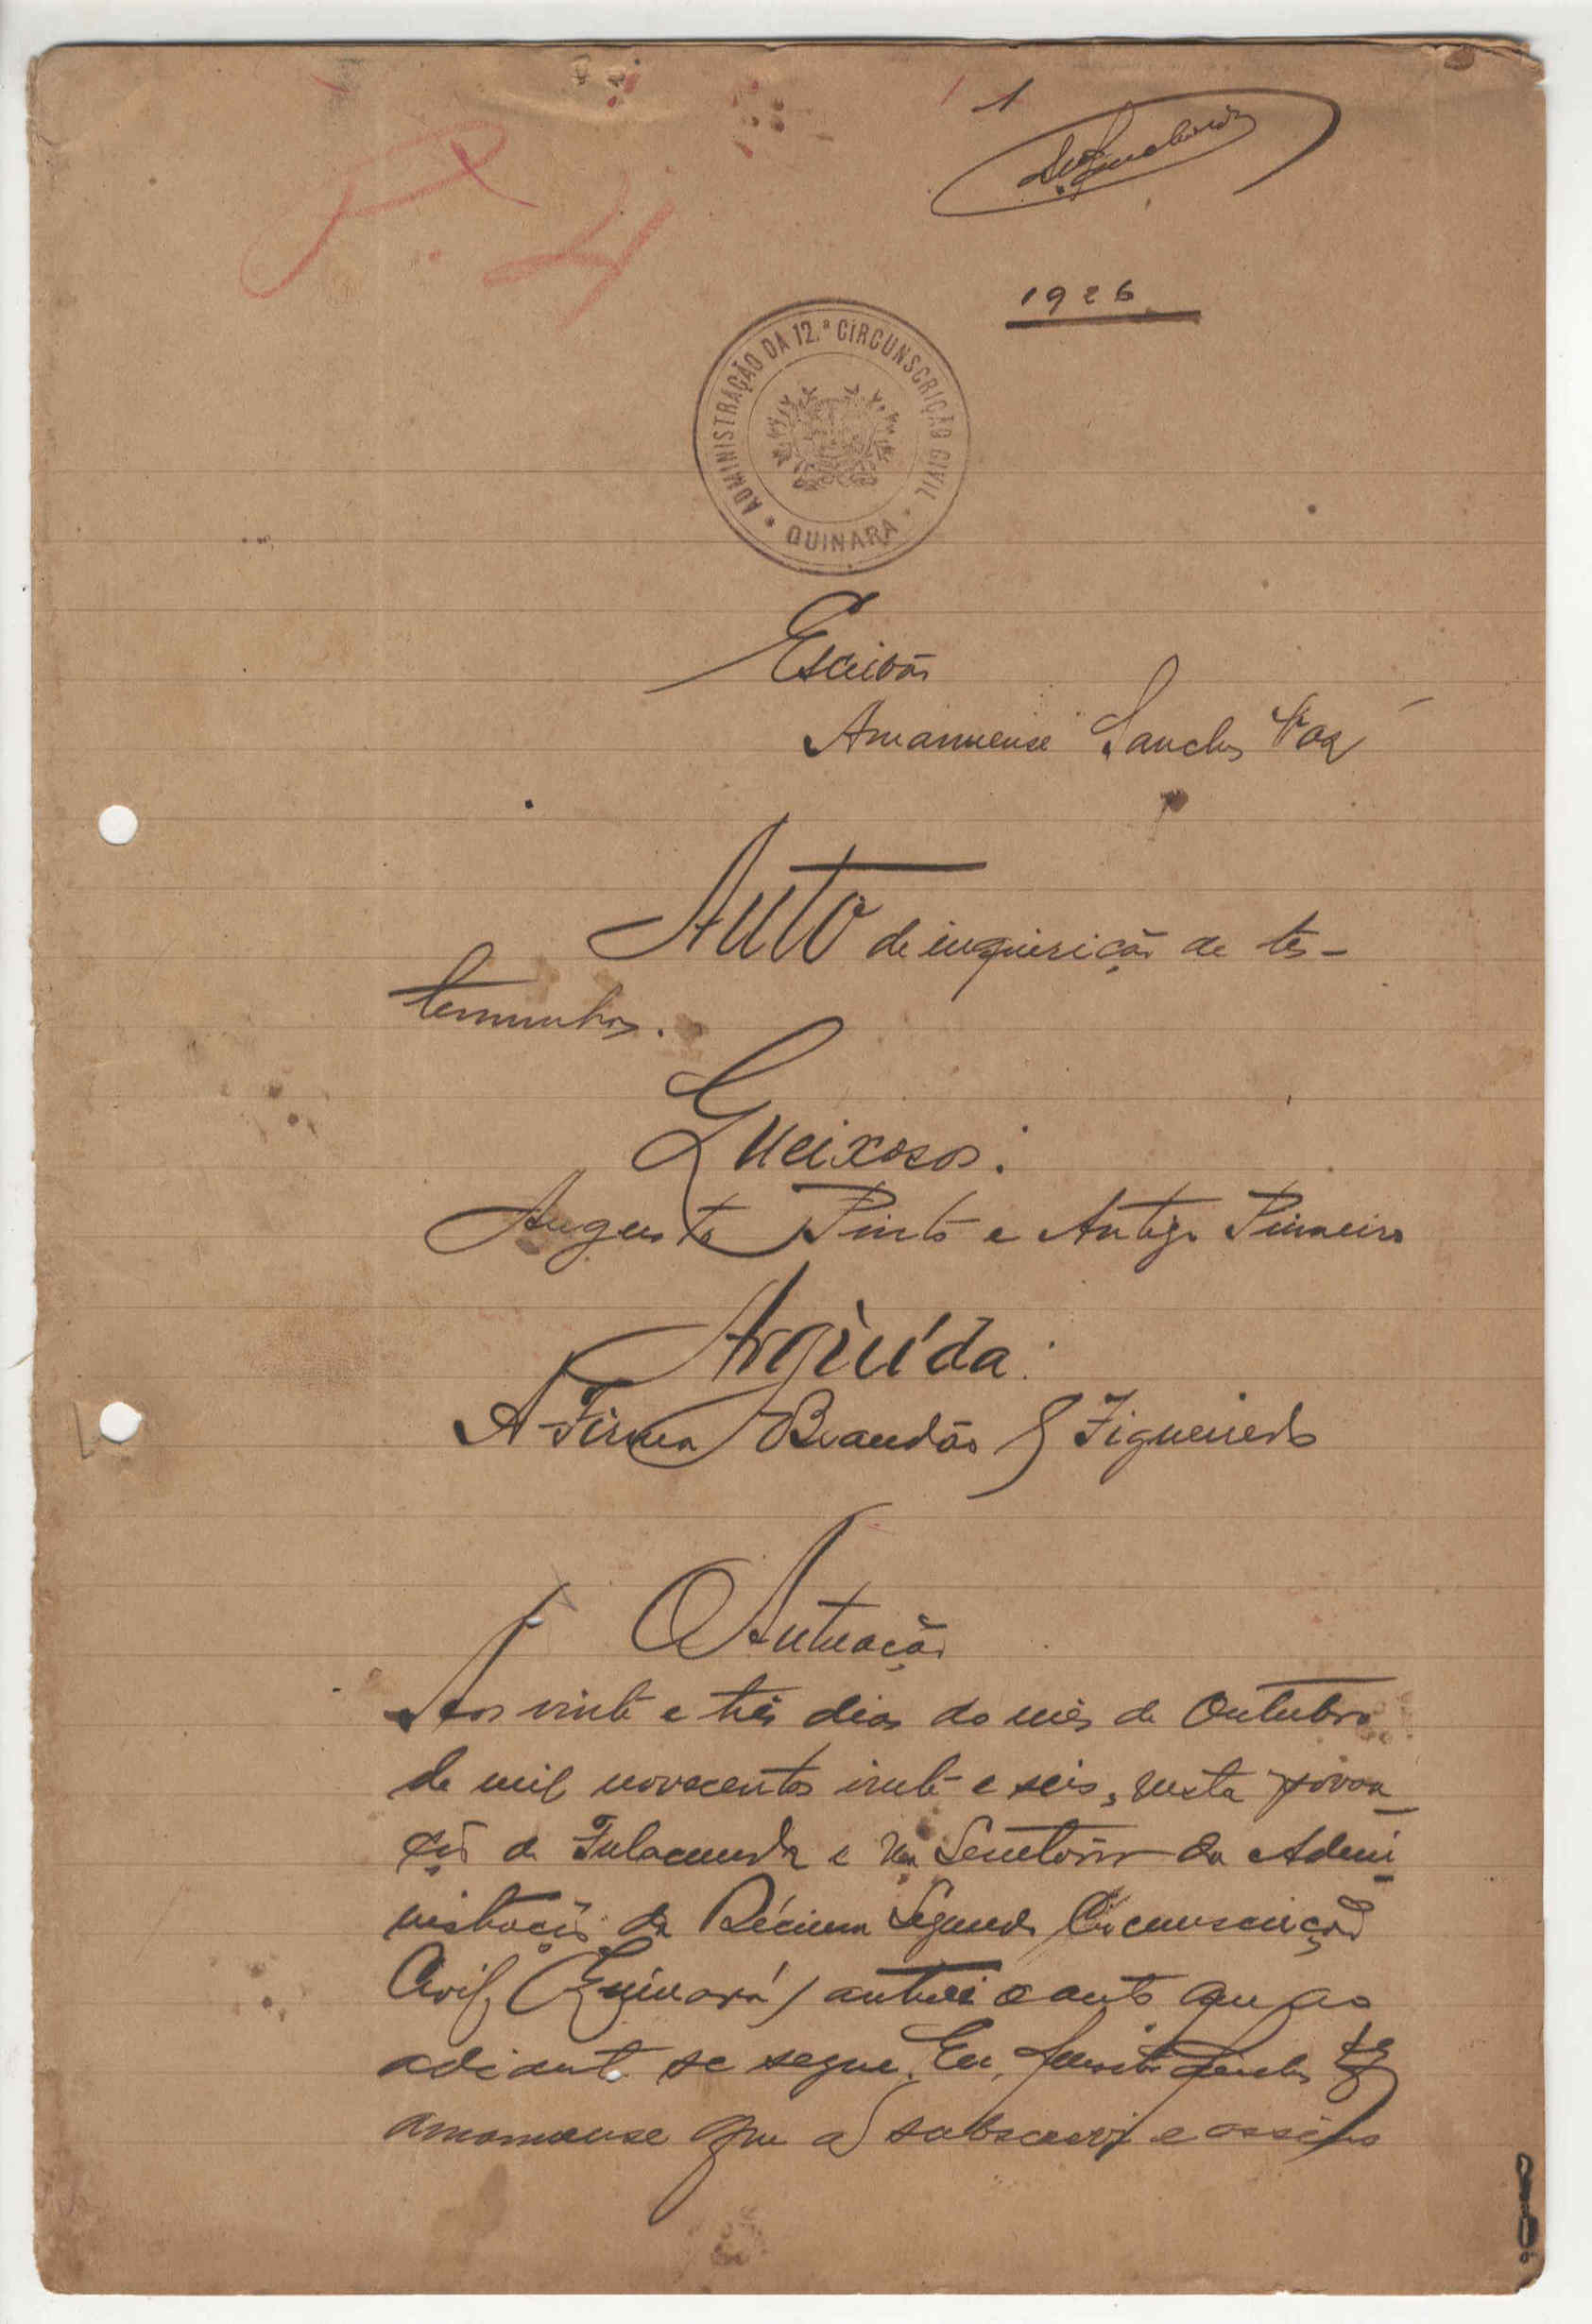 1
1926
ADMINISTRAÇÃO DA 12.ª CIRCUNSCRIÇÃO CIVIL
QUINARA
Escrivão
Amanuense Sanches Vaz
Auto de inquirição de tes-
temunhas.
Queixosos:
Augusto Pinto e Antigo Pinheiro
Argùída:
A Firma Brandão & Figueiredo
Autuação
Aos vinte e três dias do mês de Outubro
de mil novecentos vinte e seis, nesta povoa
ção de Fulacunda e na Secretaria da Admi
nistração da Décima Segunda Circunscrição
Civil (Quinará) autuei o auto que ao
adiante se segue. Eu, Sanches Vaz
amanuense que a subscrevi e assino